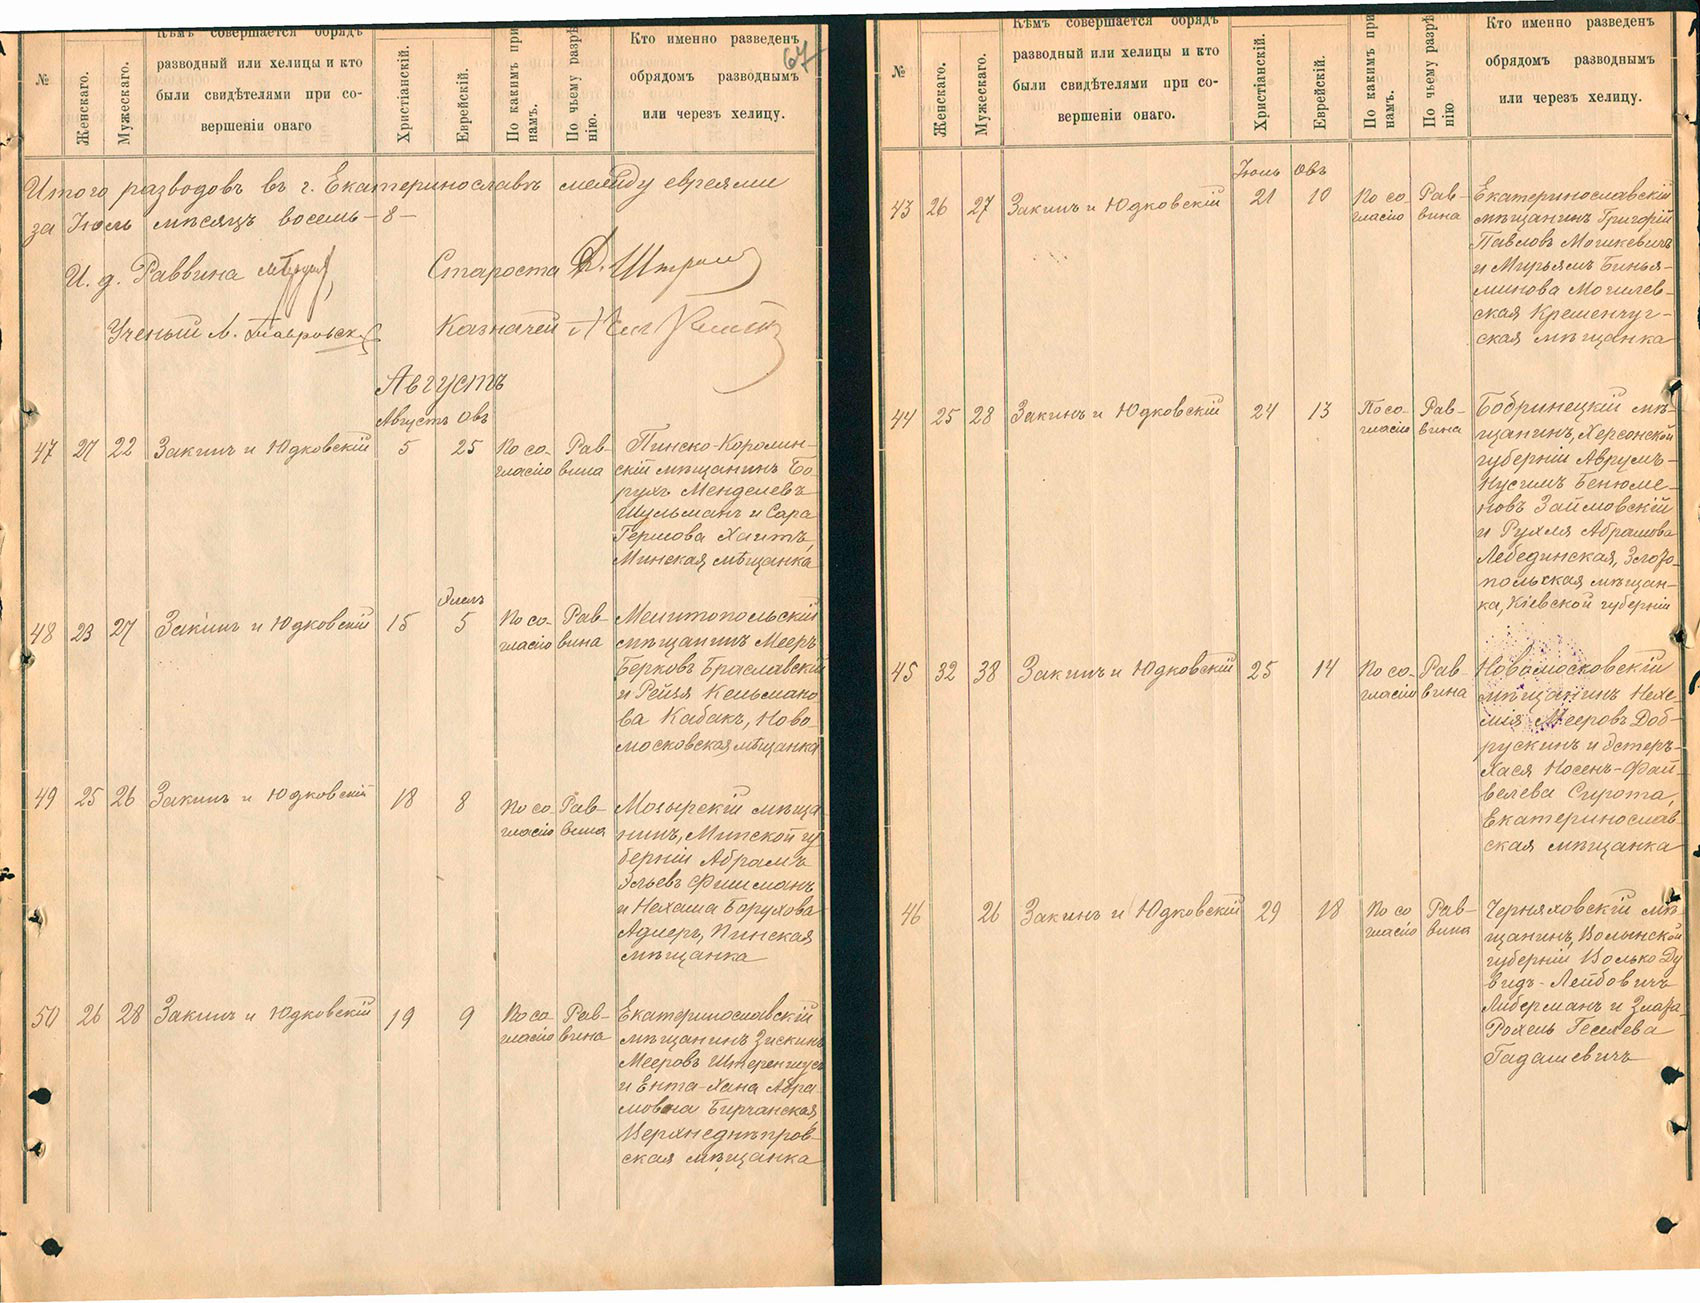 67
№
Женскаго.
Мужескаго.
Кѣмъ совершается обрядъ
разводный или хелицы и кто
были свидѣтелями при со-
вершеніи онаго
Христіанскій.
Еврейскій.
По какимъ при
намъ.
По чьему разрѣ
нію.
Кто именно разведенъ
обрядомъ разводнымъ
или черезъ хелицу.
Итого разводовъ въ г. Екатеринославѣ между евреями
за Іюль мѣсяцъ восемь - 8 -
И. д. Раввина
Староста Д. Штром
Ученый М.
Казначей
Августъ
Августъ Овъ
47 27 22 Закинъ и Юдковскій 5 25 По со- Рав- Пинско-Каролин-
гласію вина скій мѣщанинъ Бо
рухъ Менделевъ
Шульманъ и Сара
Гершова Хаитъ,
Минская мѣщанка
Элелъ
48 23 27 Закинъ и Юдковскій 15 5 По со- Рав- Мелитопольскій
гласію вина мѣщанинъ Мееръ
Берковъ Браславскій
и Рейзя Кельмано
ва Кабакъ, Ново-
московская мѣщанка
49 25 26 Закинъ и Юдковскій 18 8 По со- Рав- Мозырскій мѣща
гласію вина нинъ, Минской гу
берніи Абрамъ
Эльевъ Фишманъ
и Нехама Борухова
Адлеръ, Пинская
мѣщанка
50 26 28 Закинъ и Юдковскій 19 9 По со- Рав- Екатеринославскій
гласію вина мѣщанинъ Зискинъ
Мееровъ
и Ента-Хана Абра
мовна Бирчанская,
Верхнеднѣпров-
ская мѣщанка
№
Женскаго.
Мужескаго.
Кѣмъ совершается обрядъ
разводный или хелицы и кто
были свидѣтелями при со-
вершеніи онаго.
Христіанскій.
Еврейскій.
По какимъ при
намъ.
По чьему разрѣ
нію
Кто именно разведенъ
обрядомъ разводнымъ
или черезъ хелицу.
Іюль Овъ
43 26 27 Закинъ и Юдковскій 21 10 По со Рав- Екатеринославскій
гласію вина мѣщанинъ Григорій
Павловъ Мошкевичъ
и Мирьямъ Бинья-
минова Могилев-
ская Кременчуг-
ская мѣщанка
44 25 28 Закинъ и Юдковскій 24 13 По со- Рав- Бобринецкій мѣ-
гласію вина щанинъ, Херсонской
губерніи Аврумъ-
Нусимъ Бенюме-
новъ Займовскій
и Рухля Абрамова
Лебединская, Злато-
польская мѣщан-
ка, Кіевской губерніи
45 32 38 Закинъ и Юдковскій 25 14 По со- Рав- Новомосковскій
гласію вина мѣщанинъ Нехе-
мія Мееровъ Доб-
рускинъ и Эстеръ-
Хася Носенъ-Фай-
велева Сирота,
Екатеринослав-
ская мѣщанка
46 26 Закинъ и Юдковскій 29 18 По со Рав- Черняховскій мѣ-
гласію вина щанинъ, Волынской
губерніи Волько-Ду
видъ-Лейбовичъ
Либерманъ и Злата-
Рохель Геселева
Гадашевичъ